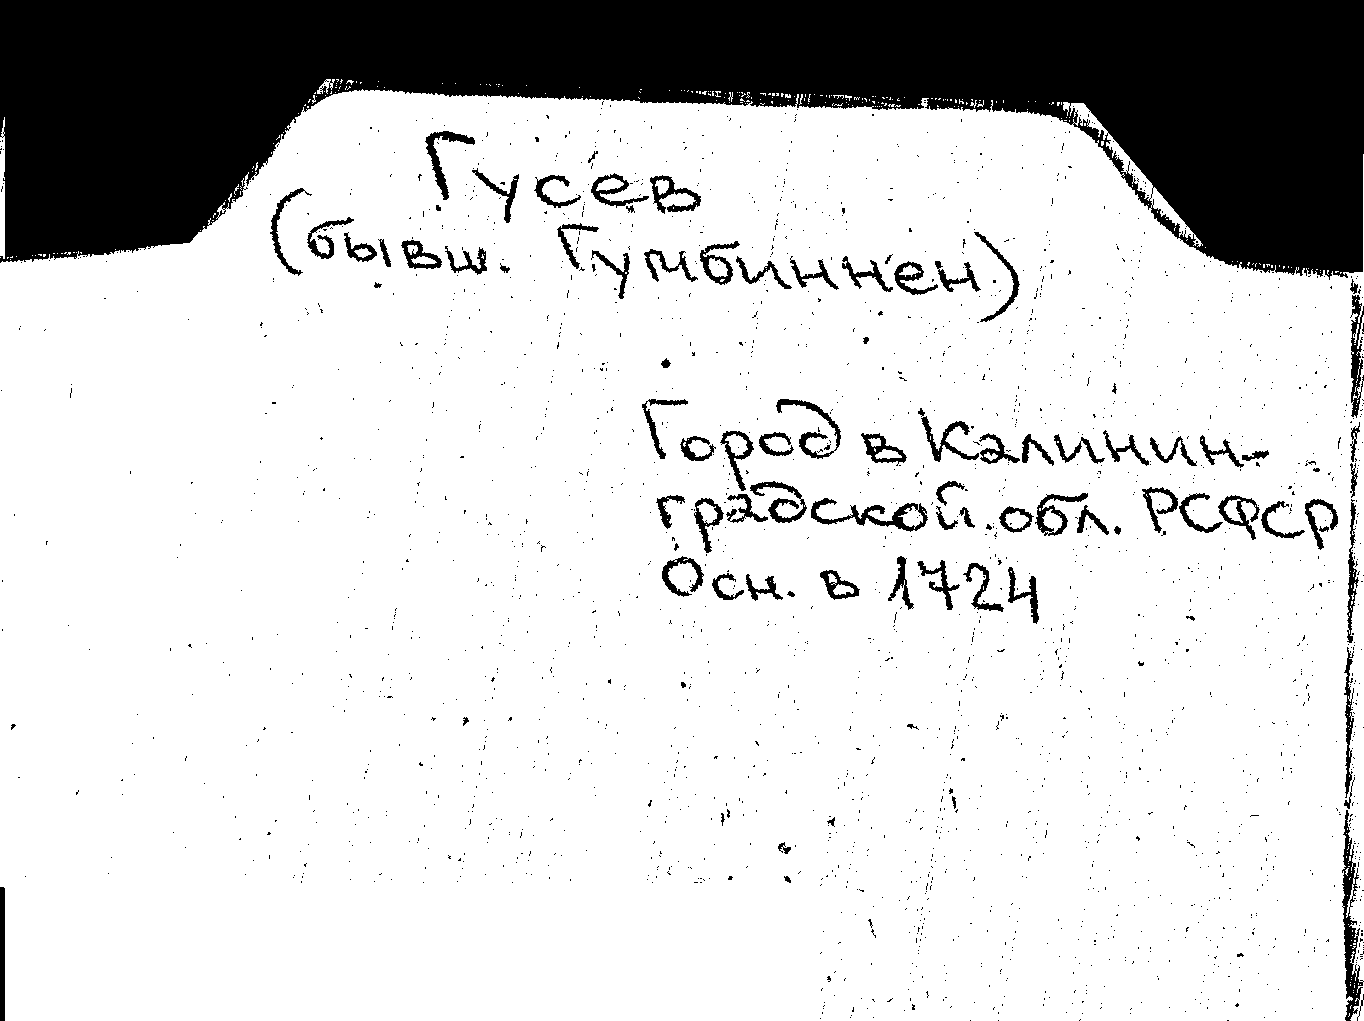 Гусев
(бывш. Гумбиннен)
Город в Калинин-
градской обл. РСФСР
Осн. в 1724